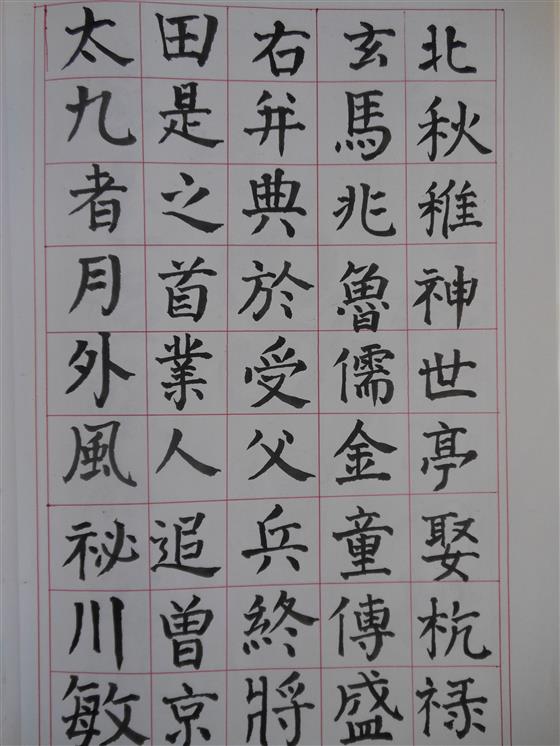 北秋稚神世亭娶杭禄
玄馬兆魯儒金童傳盛
右并典於受父兵終將
田是之首業人追曽京
太九者月外風祕川敏